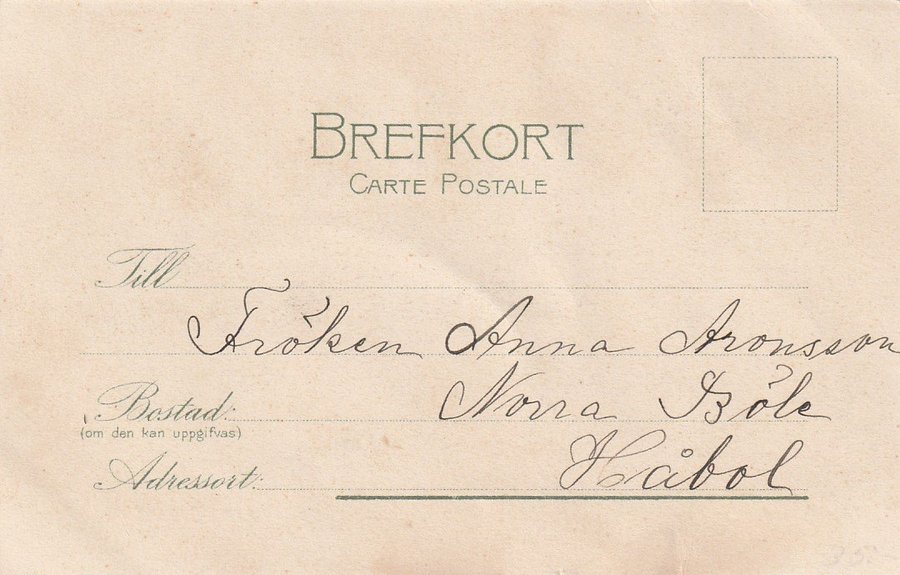 BREFKORT
CARTE POSTALE
Till
Fröken Anna Aronsson
Bostad: Norra Böle
(om den kan uppgifvas)
Adressort: Håbol